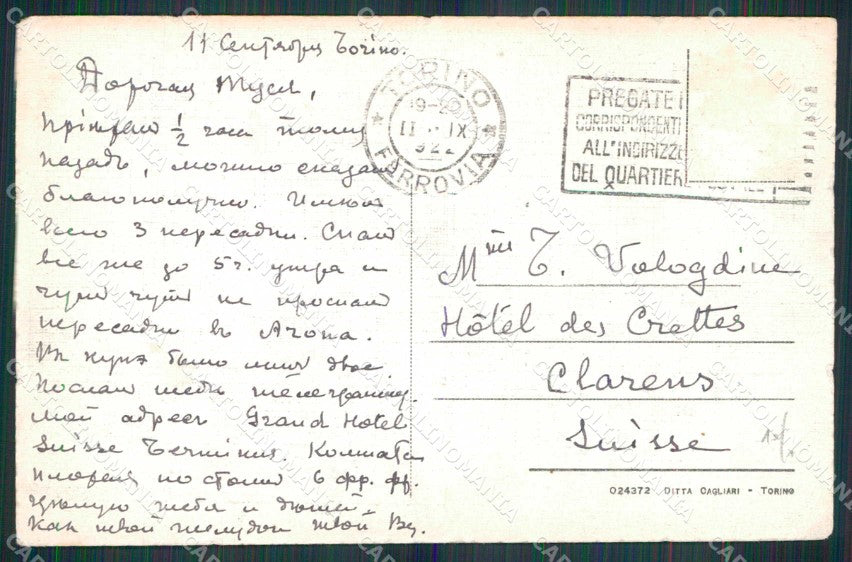 11 Сентября Torino.
Дорогая Муся,
Приехал ½ часа тому
назадъ, можно сказать
благополучно. Имел
всего 3 пересадки. Спал
все же до 5 г. утра и
чуть чуть не проспал
пересадки в Arona.
В купэ было двое.
Послал тебе телеграмму.
Мой адрес Grand Hotel
Suisse Terminus. Комната
по 6 фр. фр.
Целую тебя и
Как твой желудок твой
TORINO
19-20
11 · IX
922
FERROVIA
PREGATE I
CORRISPONDENTI
ALL'INDIRIZZO
DEL QUARTIERE
Mme T. Vologdine
Hôtel des Crettes
Clarens
Suisse
024372 DITTA CAGLIARI - TORINO
CARTOLINOMANIA